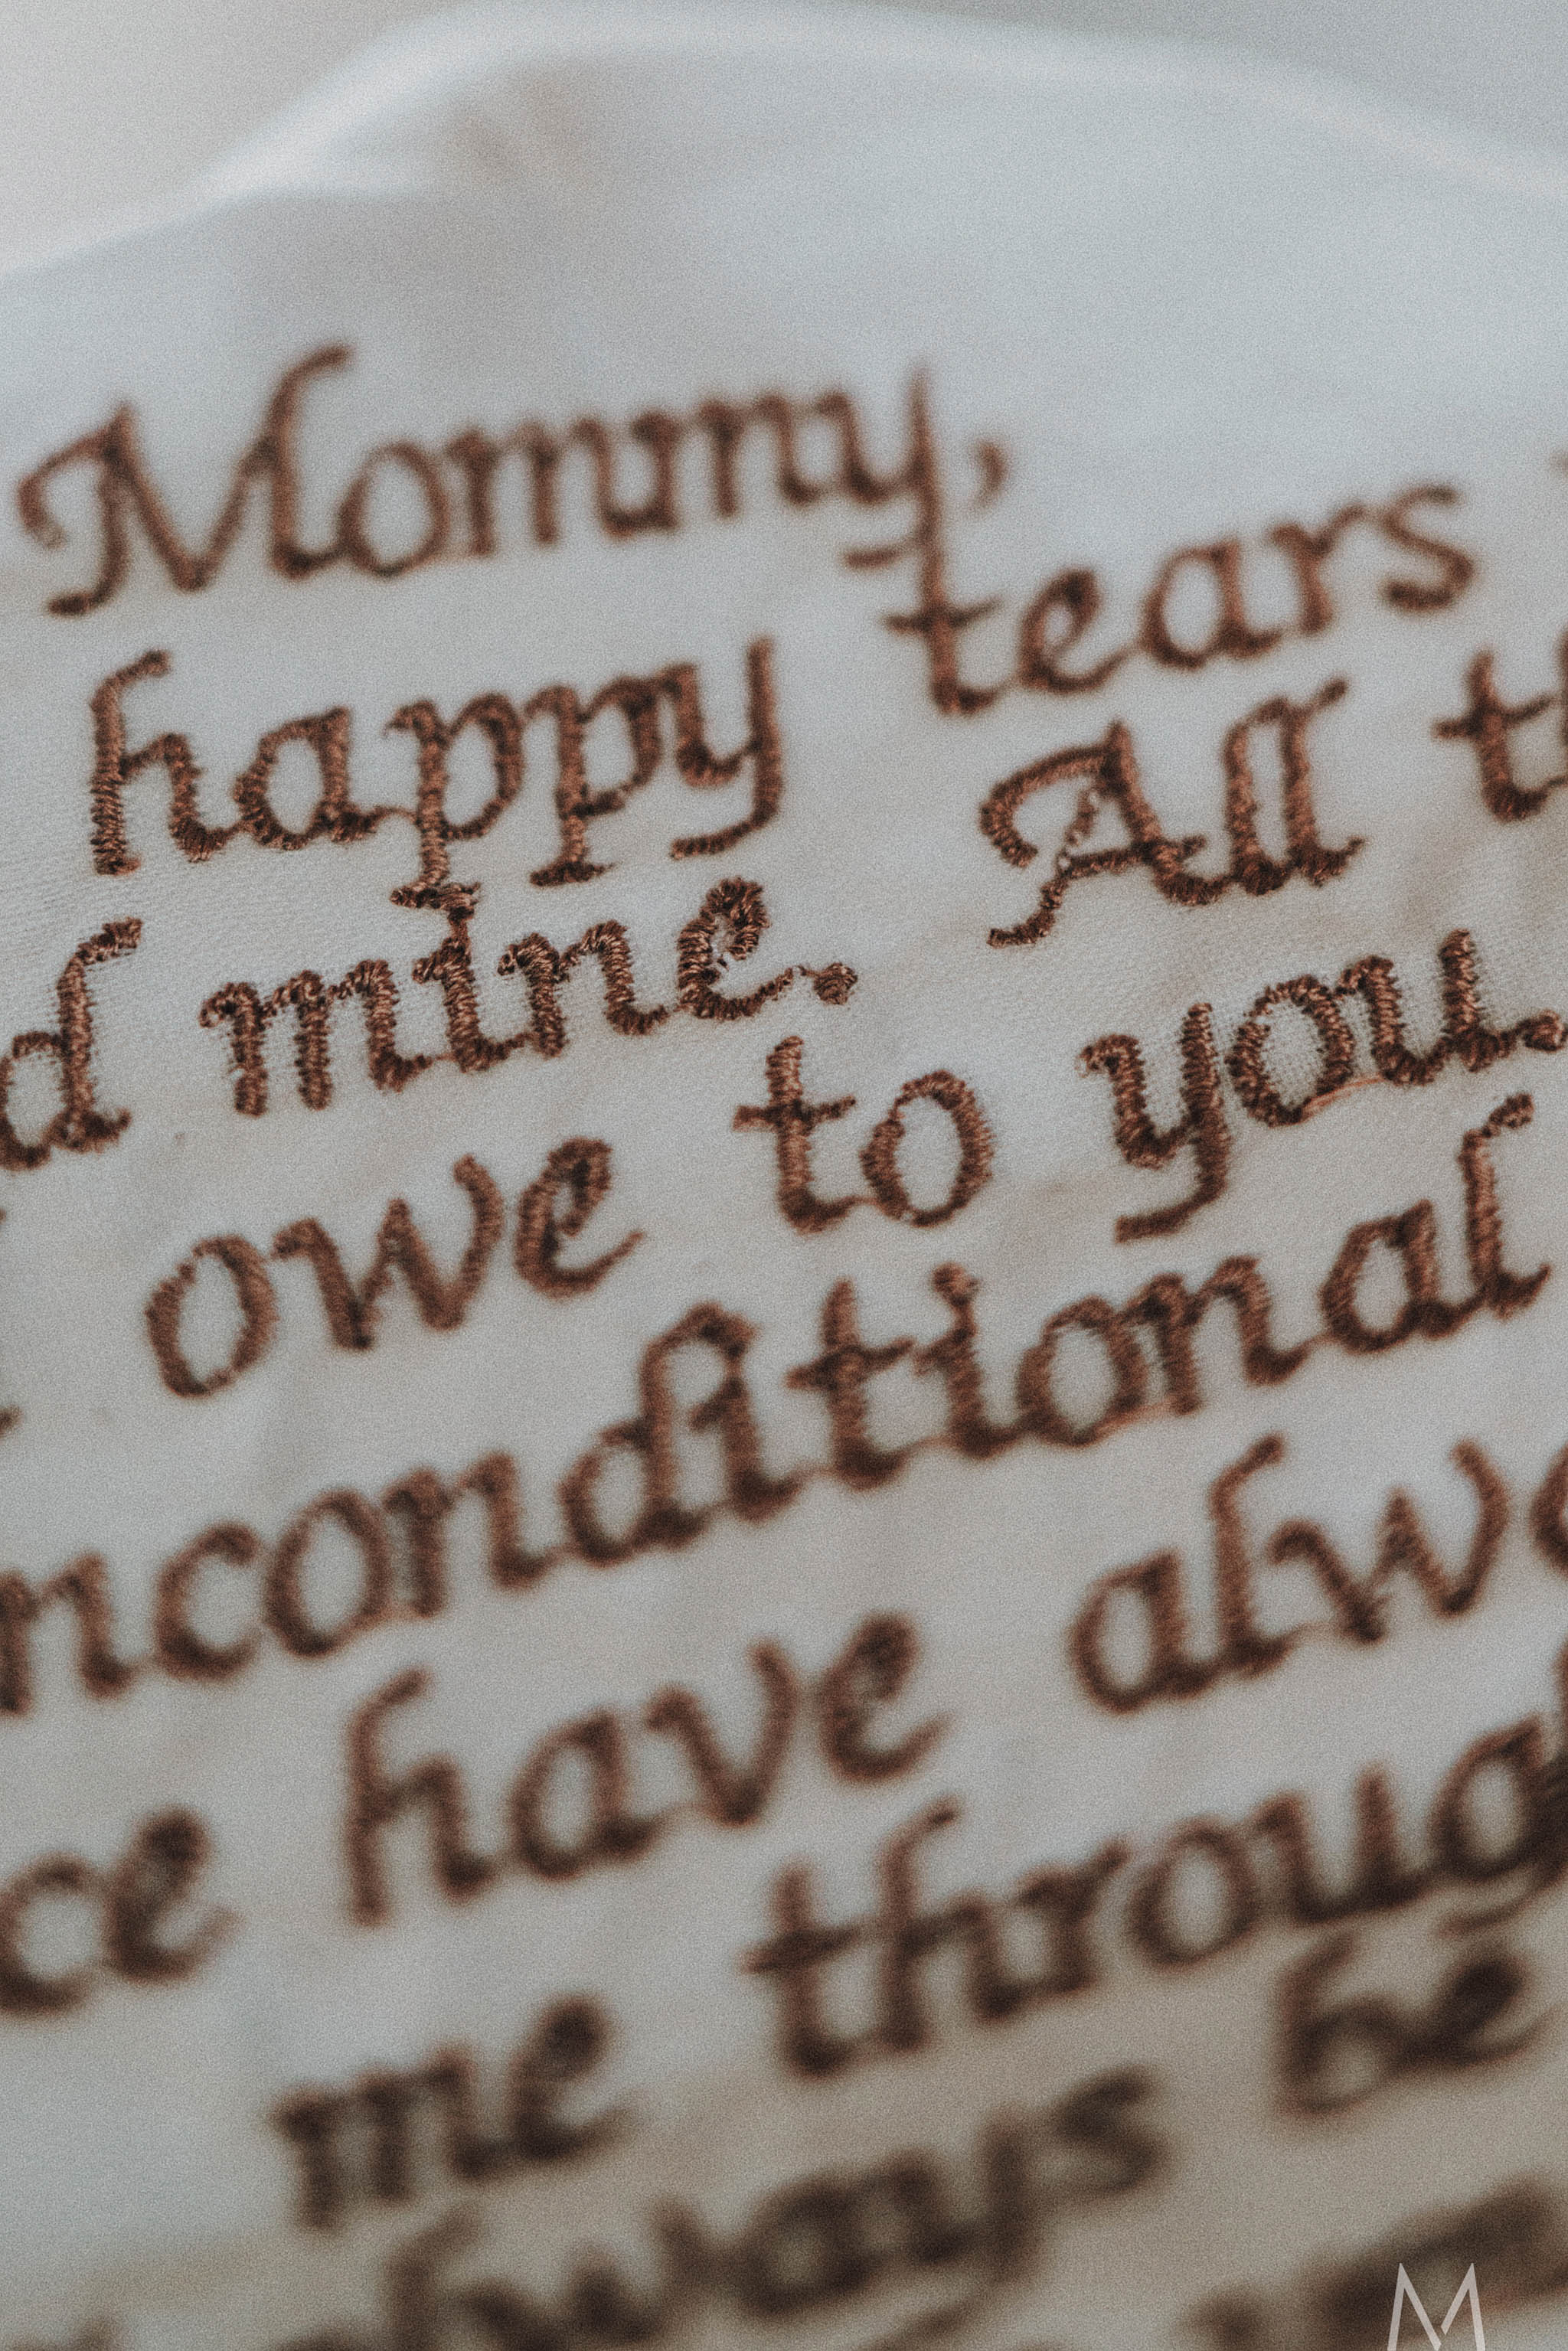 Mommy,
happy tears
d mine. All t
owe to you.
nconditional
ce have alwa
me throug
always be
M